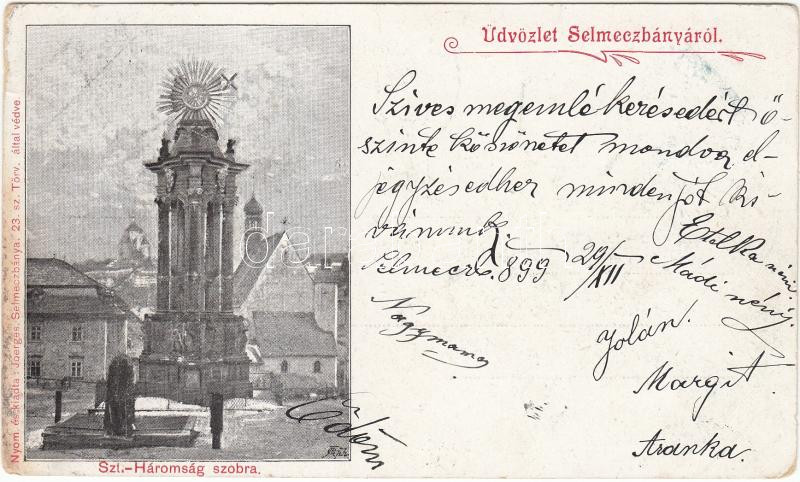 Üdvözlet Selmeczbányáról.
Szives megemlékerésedért ő-
szinte köszönetet mondva el-
jegyzésedher minden jót ki-
vánunk.
Selmecz. 899 29/XII
Etelka néni
Mádi néni
Nagymama
Jolán.
Margit.
Aranka.
Ödön
Szt.-Háromság szobra.
Nyom. és kiadta: Joerges, Selmeczbánya. 23. sz. Törv. által védve.